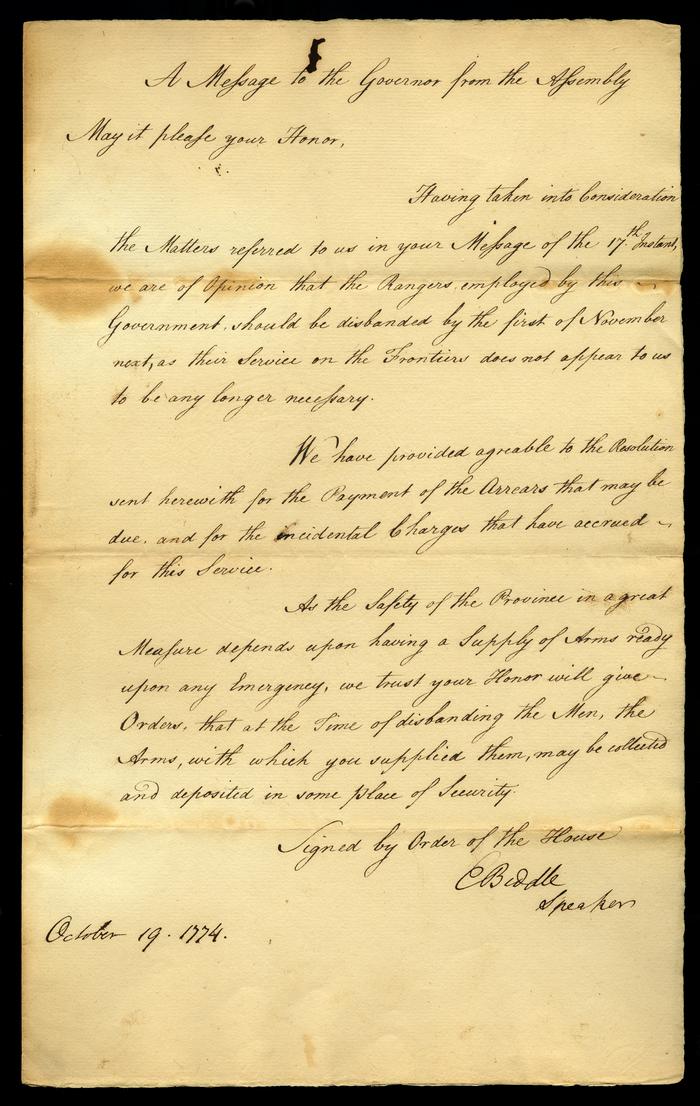 A Meſsage to the Governor from the Aſsembly
May it pleaſe your Honor,
Having taken into Consideration
the Matters referred to us in your Meſsage of the 17.th Instant,
we are of Opinion that the Rangers employed by this
Government, should be disbanded by the first of November
next, as their Service on the Frontiers does not appear to us
to be any longer neceſsary.
We have provided agreable to the Resolution
sent herewith for the Payment of the Arrears that may be
due, and for the incidental Charges that have accrued
for this Service.
As the Safety of the Province in a great
Meaſure depends upon having a Supply of Arms ready
upon any Emergency, we trust your Honor will give
Orders, that at the Time of disbanding the Men, the
Arms, with which you supplied them, may be collected
and deposited in some place of Security.
Signed by Order of the House
E Biddle
Speaker
October 19. 1774.